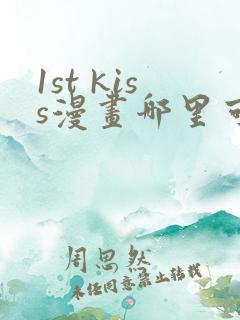 1st kis
s漫畫哪里可
周思然
未经同意禁止转载